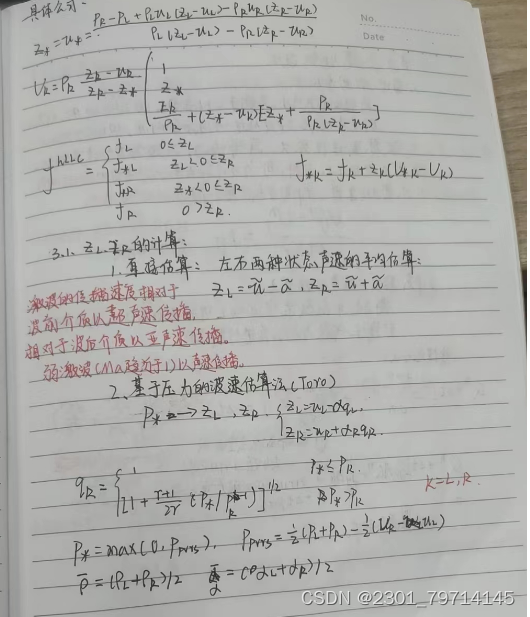 No.
Date
具体公式:
z* = u* = (P_R - P_L + ρ_L u_L (z_L - u_L) - ρ_R u_R (z_R - u_R)) / (ρ_L (z_L - u_L) - ρ_R (z_R - u_R))
U_K = ρ_K (z_K - u_K)/(z_K - z*) ( 1 ; z* ; E_K/ρ_K + (z* - u_K)[z* + P_K/(ρ_K(z_K - u_K))]
f^{hllc} = { f_L 0≤z_L
f_{*L} z_L<0≤z_R
f_{*R} z*<0≤z_R
f_R 0>z_R.
f_{*K} = f_K + z_K(U_{*K} - U_K)
3.1. z_L z_R的计算:
1. 直接估算: 左右两种状态声速的平均估算:
z_L = ũ - ã, z_R = ũ + ã
激波的传播速度相对于
波前介质以超声速传播,
相对于波后介质以亚声速传播。
弱激波(Ma趋近于1)以声速传播。
2. 基于压力的波速估算法(Toro)
P* → z_L, z_R. { z_L = u_L - αq_L.
z_R = u_R + α_R q_R.
q_K = { 1 P* ≤ P_K.
[1 + (γ+1)/2γ (P*/P_K - 1)]^{1/2} P* > P_K
K=L,R.
P* = max(0, P_{pvrs}), P_{pvrs} = ½(P_L+P_R) - ½(u_R - u_L)
ρ̄ = (ρ_L+ρ_R)/2 ᾱ = (α_L+α_R)/2
CSDN @2301_79714145